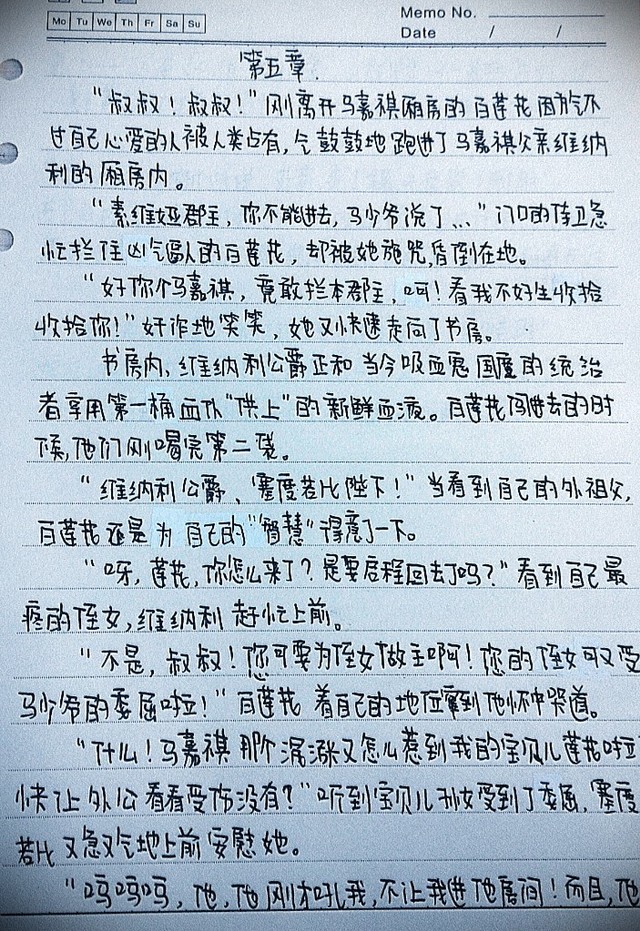 Memo No.
Mo Tu We Th Fr Sa Su
Date / /
第五章.
“叔叔！叔叔！”刚离开马嘉祺厢房的百莲花因为气不
过自己心爱的人被人类占有，气鼓鼓地跑进了马嘉祺父亲维纳
利的厢房内。
“素维娅郡主，你不能进去，马少爷说了…”门口的侍卫急
忙拦住凶气逼人的百莲花，却被她施咒，昏倒在地。
“好你个马嘉祺，竟敢拦本郡主，呵！看我不好生收拾
收拾你！”奸诈地笑笑，她又快速走向了书房。
书房内，维纳利公爵正和当今吸血鬼国度的统治
者享用第一桶血仆“供上”的新鲜血液。百莲花闯进去的时
候，他们刚喝完第二袋。
“维纳利公爵、塞度若比陛下！”当看到自己的外祖父，
百莲花还是为自己的“智慧”得意了一下。
“呀，莲花，你怎么来了？是要启程回去了吗？”看到自己最
疼的侄女，维纳利赶忙上前。
“不是，叔叔！您可要为侄女做主啊！您的侄女可又受
马少爷的委屈啦！”百莲花着自己的地位窜到他怀中哭道。
“什么！马嘉祺那个混涨又怎么惹到我的宝贝儿莲花啦
快让外公看看受伤没有？”听到宝贝儿孙女受到了委屈，塞度
若比又急又气地上前安慰她。
“呜呜呜，他，他刚才吼我，不让我进他房间！而且，他